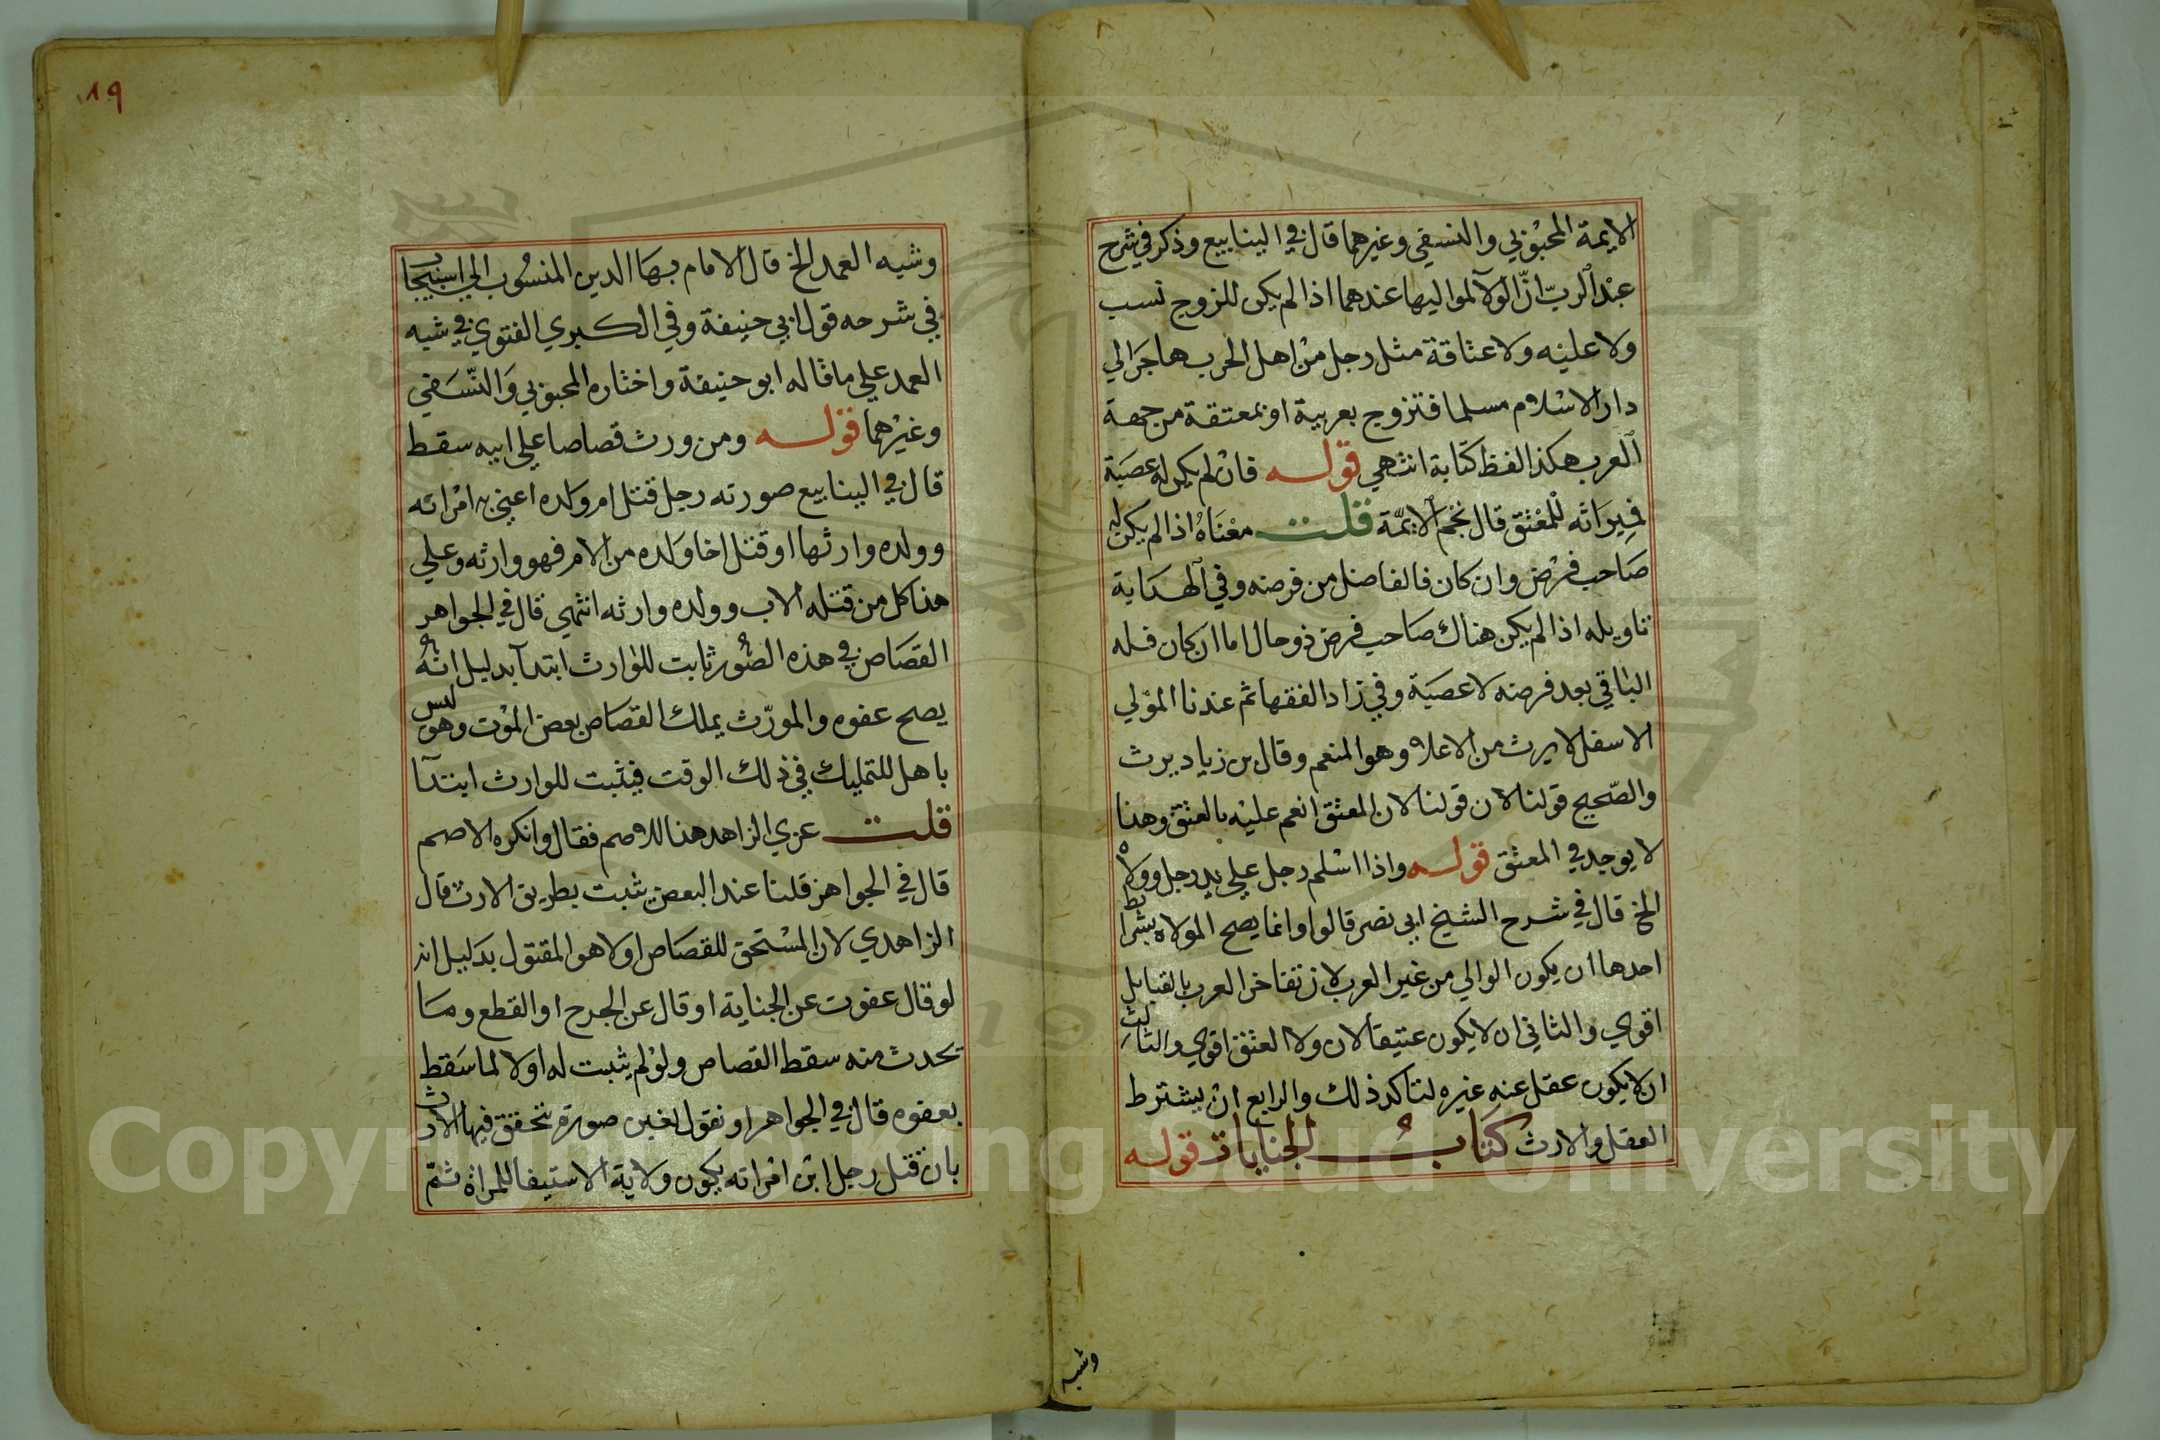 الايمة المحبوبي والنسفي وغيرهما قال في الينابيع وذكر في شرح
عبد الرب ان الولآ لمواليها عندهما اذا لم يكن للزوج نسب
ولا عليه ولا عتاقة مثل رجل من اهل الحرب هاجر الي
دار الاسلام مسلما فتزوج بعربية او بمعتقة من جهة
العرب هكذا لفظ كتابة انتهي قوله فان لم يكن له عصبة
فميراثه للمعتق قال نجم الايمة قلت معناه اذا لم يكن له
صاحب فرض وان كان فالفاضل من فرضه وفي الهداية
تاويله اذا لم يكن هناك صاحب فرض ذو حال اما ان كان فله
الباقي بعد فرضه لا عصبة وفي زاد الفقها ثم عندنا المولي
الاسفل لا يرث من الاعلا وهو المنعم وقال بن زياد يرث
والصحيح قولنا لان قولنا لان المعتق انعم عليه بالعتق وهذا
لا يوجد في المعتق قوله واذا اسلم رجل علي يد رجل وولاه
الخ قال في شرح الشيخ ابي نصر قالوا وانما يصح المولاة بشرايط
احدها ان يكون الوالي من غير العرب لان تفاخر العرب بالقبايل
اقوي والثاني ان لا يكون عتيقا لان ولا العتق اقوي والثالث
ان لا يكون عقل عنه غيره لتاكد ذلك والرابع ان يشترط
العقل والارث كتاب الجنايات قوله
وشبه
١٩
وشبه العمد الخ قال الامام بها الدين المنسوب الي اسبيجاب
في شرحه قول ابي حنيفة وفي الكبري الفتوي في شبه
العمد علي ما قاله ابو حنيفة واختاره المحبوبي والنسفي
وغيرهما قوله ومن ورث قصاصا علي ابيه سقط
قال في الينابيع صورته رجل قتل ام ولده اعني به امراته
وولده وارثها او قتل اخا ولده من الام فهو وارثه وعلي
هذا كل من قتله الاب وولده وارثه انتهي قال في الجواهر
القصاص في هذه الصور ثابت للوارث ابتدآ بدليل انه
يصح عفوه والمورث يملك القصاص بعض الموت وهو ليس
باهل للتمليك في ذلك الوقت فيثبت للوارث ابتدآ
قلت عزي الزاهد هذا للاصم فقال وانكره الاصم
قال في الجواهر قلنا عند البعض يثبت بطريق الارث قال
الزاهدي لان المستحق للقصاص اولا هو المقتول بدليل انه
لو قال عفوت عن الجناية او قال عن الجرح او القطع وما
تحدث منه سقط القصاص ولو لم يثبت له اولا لما سقط
بعفوه قال في الجواهر او نقول لغين صورة تتحقق فيها الارث
بان قتل رجل ابن امراته يكون ولاية الاستيفا للمراة ثم
Copyright © King Saud University